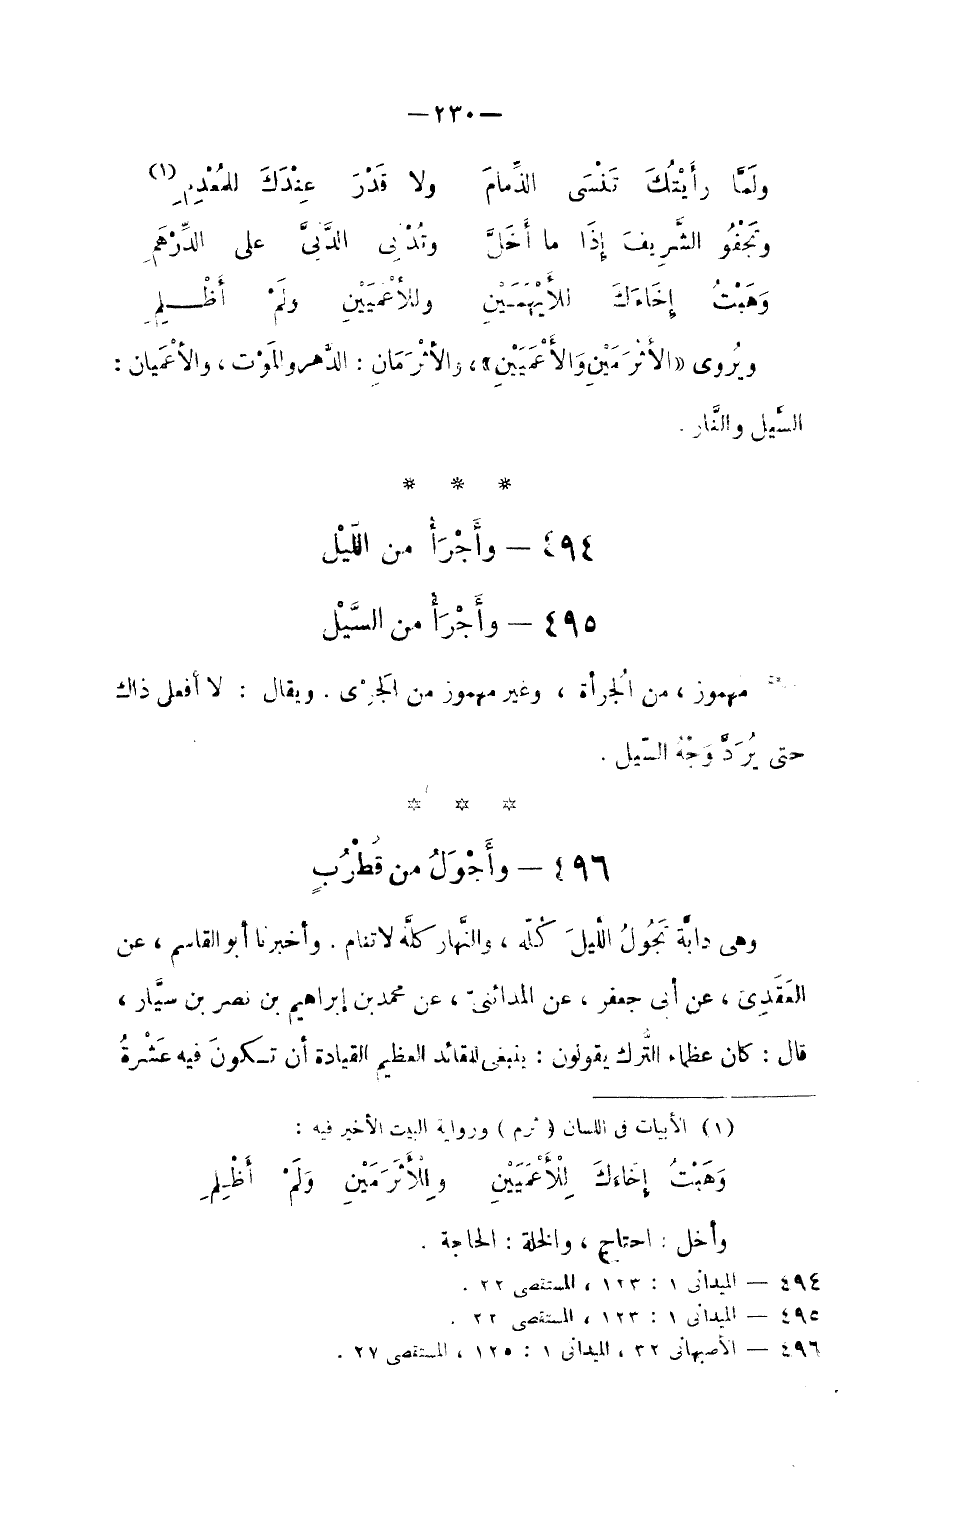 —٢٣٠—
ولَمَّا رأَيْتُكَ تَنْسَى الذِّمامَ ولا قَدْرَ عِنْدَكَ للمُعْدِمِ (١)
وتَجْفُو الشَّريفَ إِذَا ما أَخَلَّ وتُدْنِى الدَّنِىَّ على الدِّرْهَمِ
وَهَبْتُ إِخَاءَكَ للأَيْهَمَيْنِ وللأَعْمَيَيْنِ ولَمْ أَظْــلِمِ
ويُروى «الأَثْرَمَيْنِ وَالأَعْمَيَيْنِ»، والأثْرَمَانِ : الدَّهر والمَوْت ، والأعْمَيان :
السَّيل والنَّار .
* * *
٤٩٤ — وأَجْرَأُ من اللَّيْل
٤٩٥ — وأَجْرَأُ من السَّيْل
مهموز ، من الجُرأة ، وغير مهموز من الجَرْى . ويقال : لا أفعل ذاك
حتى يُرَدَّ وَجْهُ السَّيل .
* * *
٤٩٦ — وأَجْوَلُ من قُطْرُبٍ
وهى دابَّة تَجُولُ اللَّيلَ كُلَّه ، والنَّهار كلَّه لا تنام . وأخبرنا أبو القاسم ، عن
العَقَدِىّ ، عن أبى جعفر ، عن المدائنىّ ، عن محمد بن إبراهيم بن نصر بن سيَّار ،
قال : كان عظماء التُّرك يقولون : ينبغى للقائد العظيم القيادة أن تـكونَ فيه عَشْرةُ
(١) الأبيات فى اللسان ( ثرم ) ورواية البيت الأخير فيه :
وَهَبْتُ إِخَاءَكَ لِلْأَعْمَيَيْنِ ولِلْأَثْرَمَيْنِ وَلَمْ أَظْلِمِ
وأخل : احتاج ، والخلة : الحاجة .
٤٩٤ — الميدانى ١ : ١٢٣ ، المستقصى ٢٢ .
٤٩٥ — الميدانى ١ : ١٢٣ ، المستقصى ٢٢ .
٤٩٦ — الأصبهانى ٣٢ ، الميدانى ١ : ١٢٥ ، المستقصى ٢٧ .